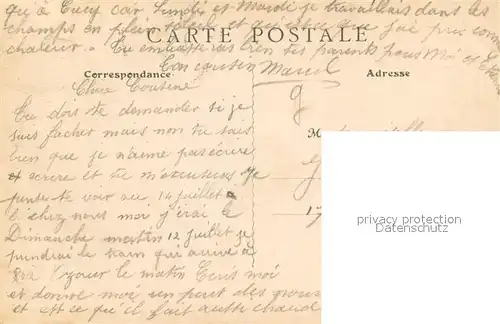 qu'à Cucy car Lundi et Mardi je travaillais dans les
champs en plein soleil et qu'est ce que j'ai pris comme
chaleur. Tu embrasseras bien tes parents pour moi et
CARTE POSTALE
Ton cousin Marcel
Correspondance
Adresse
Chère Cousine
Tu dois te demander si je
suis facher mais non tu sais
bien que je n'aime pas écrire
et
pense te voir au 14 juillet
chez nous moi j'irai le
Dimanche matin 12 juillet je
prendrai le train qui arrive à
le matin Ecris moi
et donne moi un peut des
et est ce qu'il fait aussi chaud
M
17
privacy protection
www.ansichtskartenversand.com